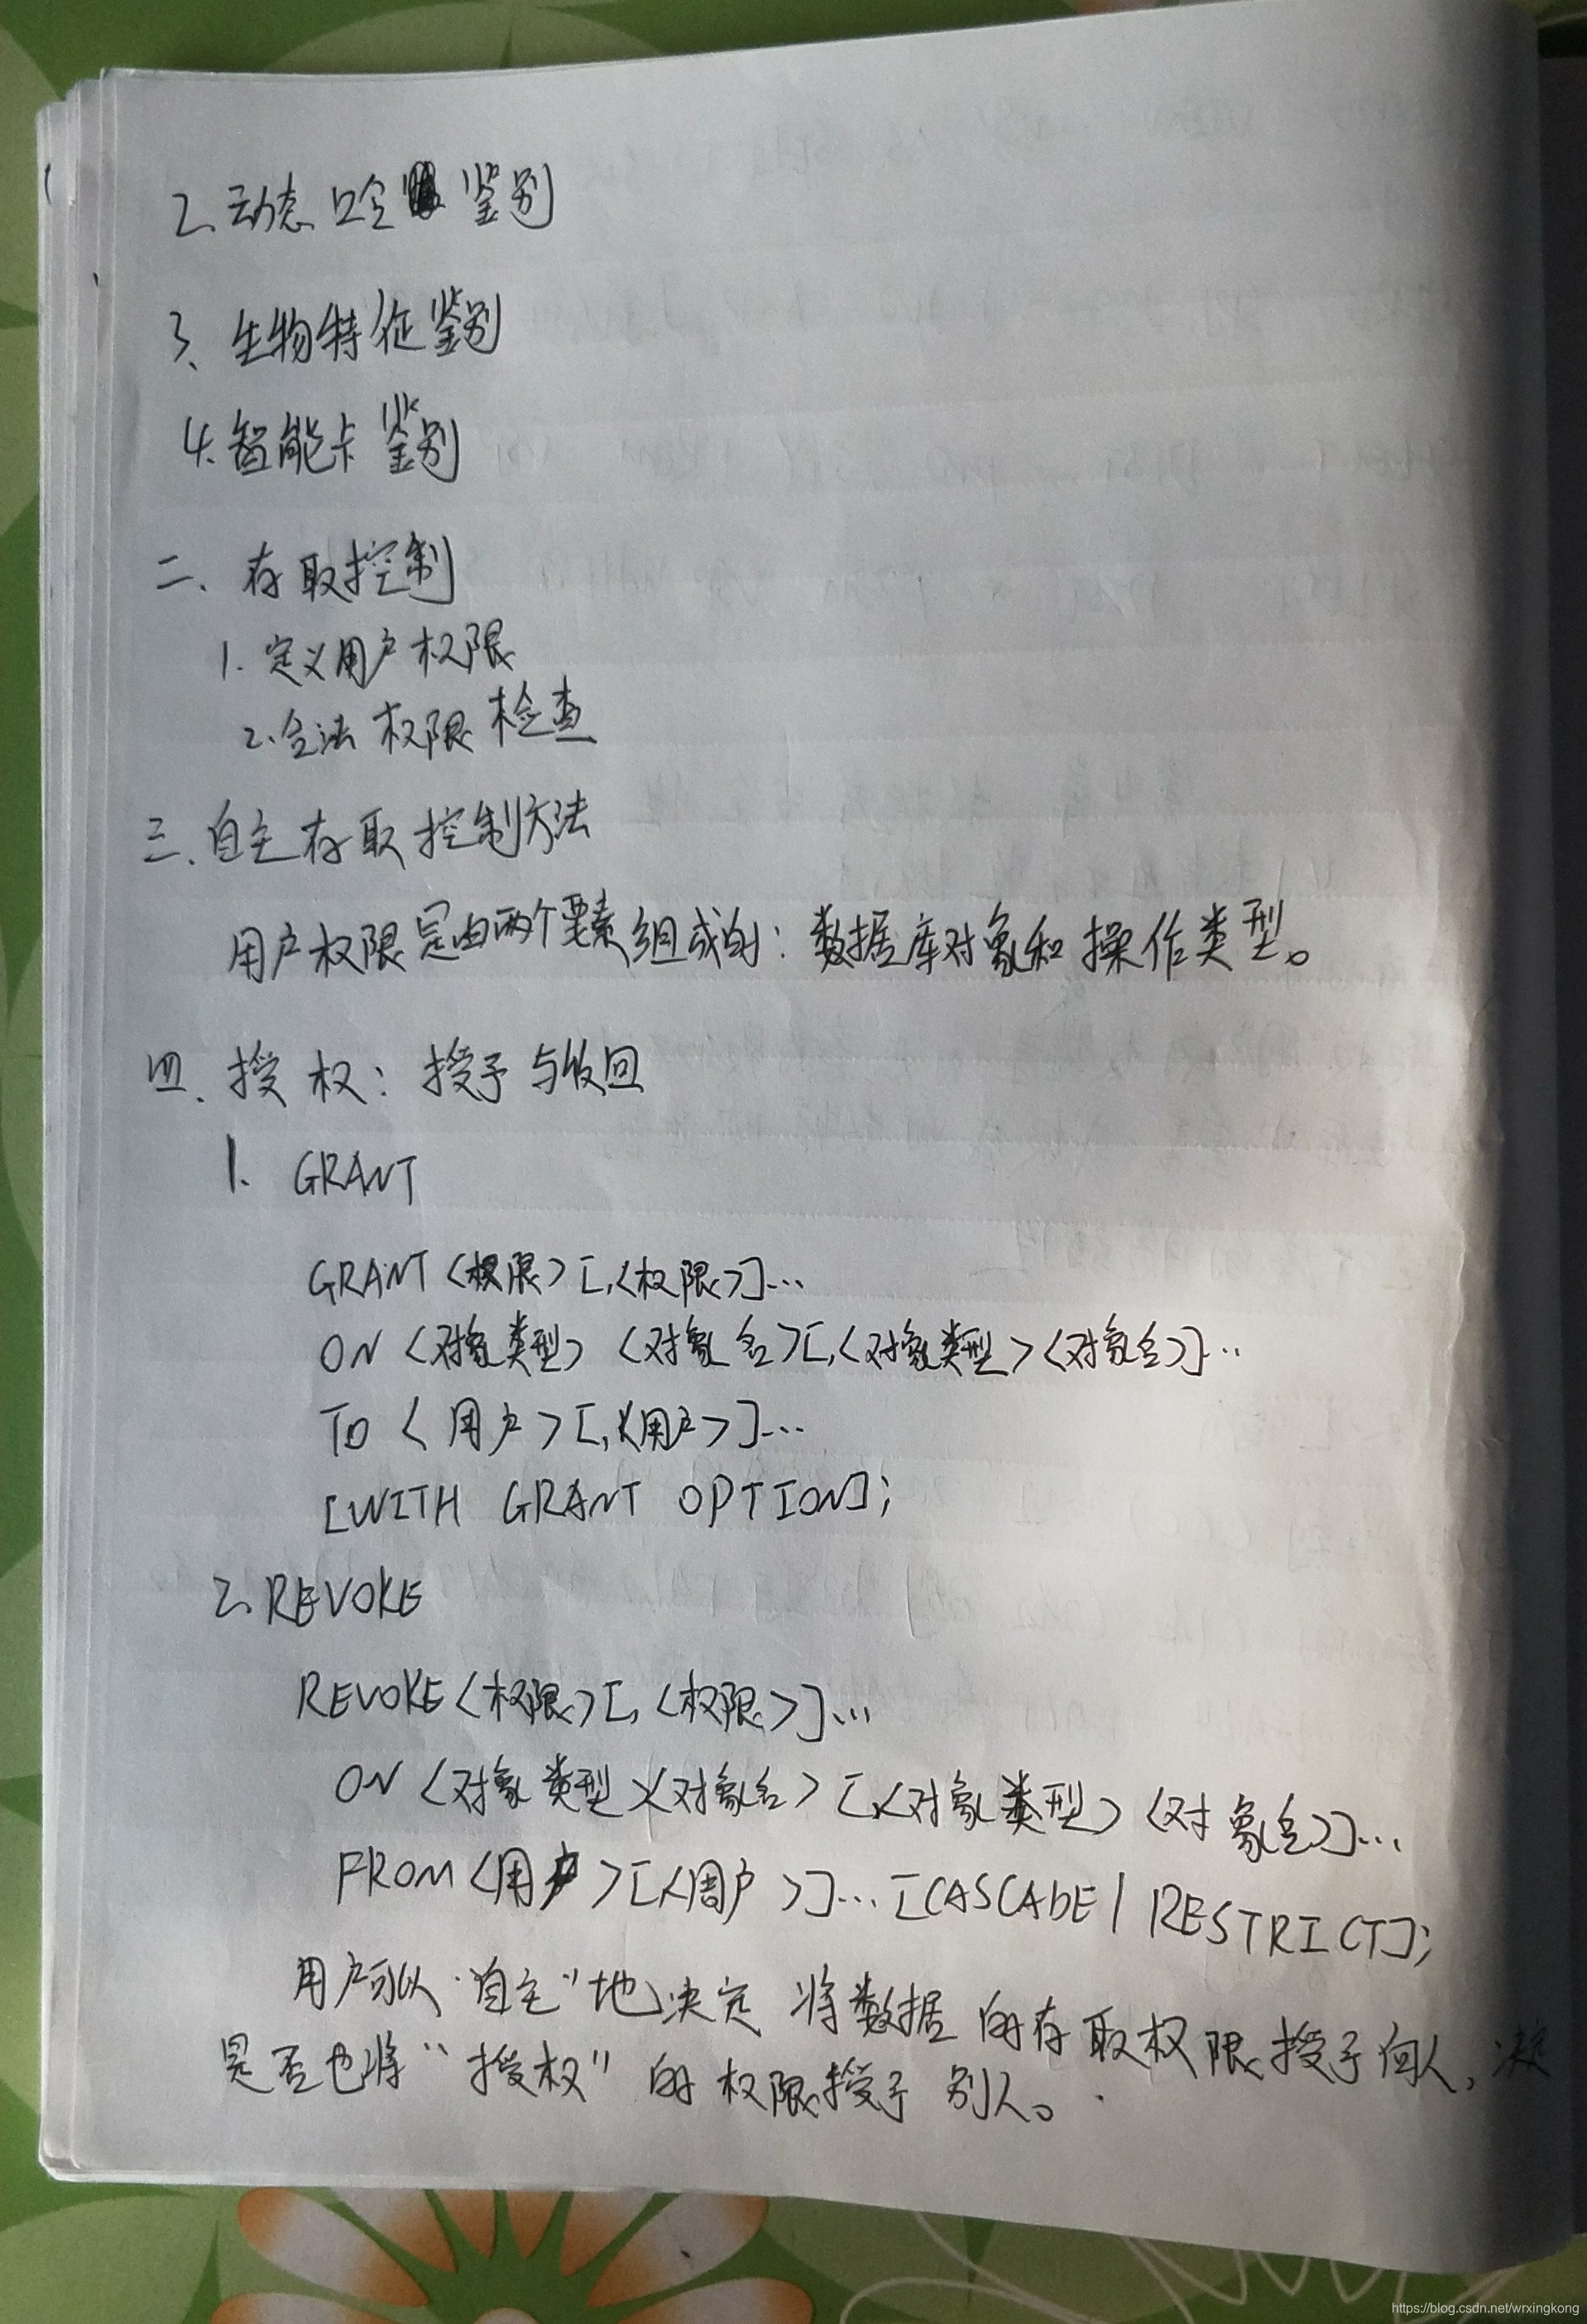 2、动态口令鉴别
3、生物特征鉴别
4、智能卡鉴别
二、存取控制
1. 定义用户权限
2、合法权限检查
三、自主存取控制方法
用户权限是由两个要素组成的：数据库对象和操作类型。
四、授权：授予与收回
1. GRANT
GRANT<权限>[,<权限>]...
ON <对象类型> <对象名>[,<对象类型><对象名>]...
TO <用户>[,<用户>]...
[WITH GRANT OPTION];
2、REVOKE
REVOKE<权限>[,<权限>]...
ON <对象类型><对象名>[,<对象类型><对象名>]...
FROM<用户>[,<用户>]...[CASCADE|RESTRICT];
用户可以“自主”地决定将数据的存取权限授予何人，决定
是否也将“授权”的权限授予别人。
https://blog.csdn.net/wrxingkong